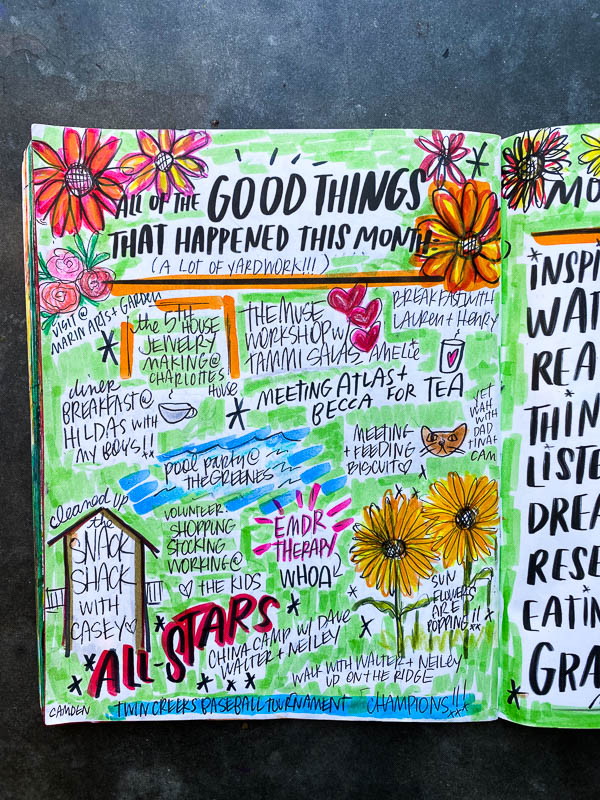 ALL OF THE GOOD THINGS
THAT HAPPENED THIS MONTH:
(A LOT OF YARDWORK!!!)
VISIT @
MARIN ARTS + GARDEN
the 5TH HOUSE
JEWELRY
MAKING @
CHARLOTTE'S
HOUSE
THE MUSE
WORKSHOP W/
TAMMI SALAS
AMELIE
BREAKFAST WITH
LAUREN + HENRY
diner
BREAKFAST @
HILDAS WITH
MY BOYS!!
MEETING ATLAS +
BECCA FOR TEA
MEETING
+ FEEDING
BISCUIT
VET
WALK
WITH
DAD
TINA +
CAM
POOL PARTY @
THE GREENES
cleaned up
the
SNACK
SHACK
WITH
CASEY
VOLUNTEER
SHOPPING
STOCKING
WORKING @
THE KIDS
EMDR
THERAPY
WHOA
SUN
FLOWERS
ARE
POPPING!!
ALL-STARS
CHINA CAMP W/ DAVE
WALTER + NEILEY
WALK WITH WALTER + NEILEY
UP ON THE RIDGE
CAMDEN
TWIN CREEKS BASEBALL TOURNAMENT CHAMPIONS!!!
MO
INSPI
WAT
REA
THIN
LISTE
DREA
RESE
EATIN
GRA